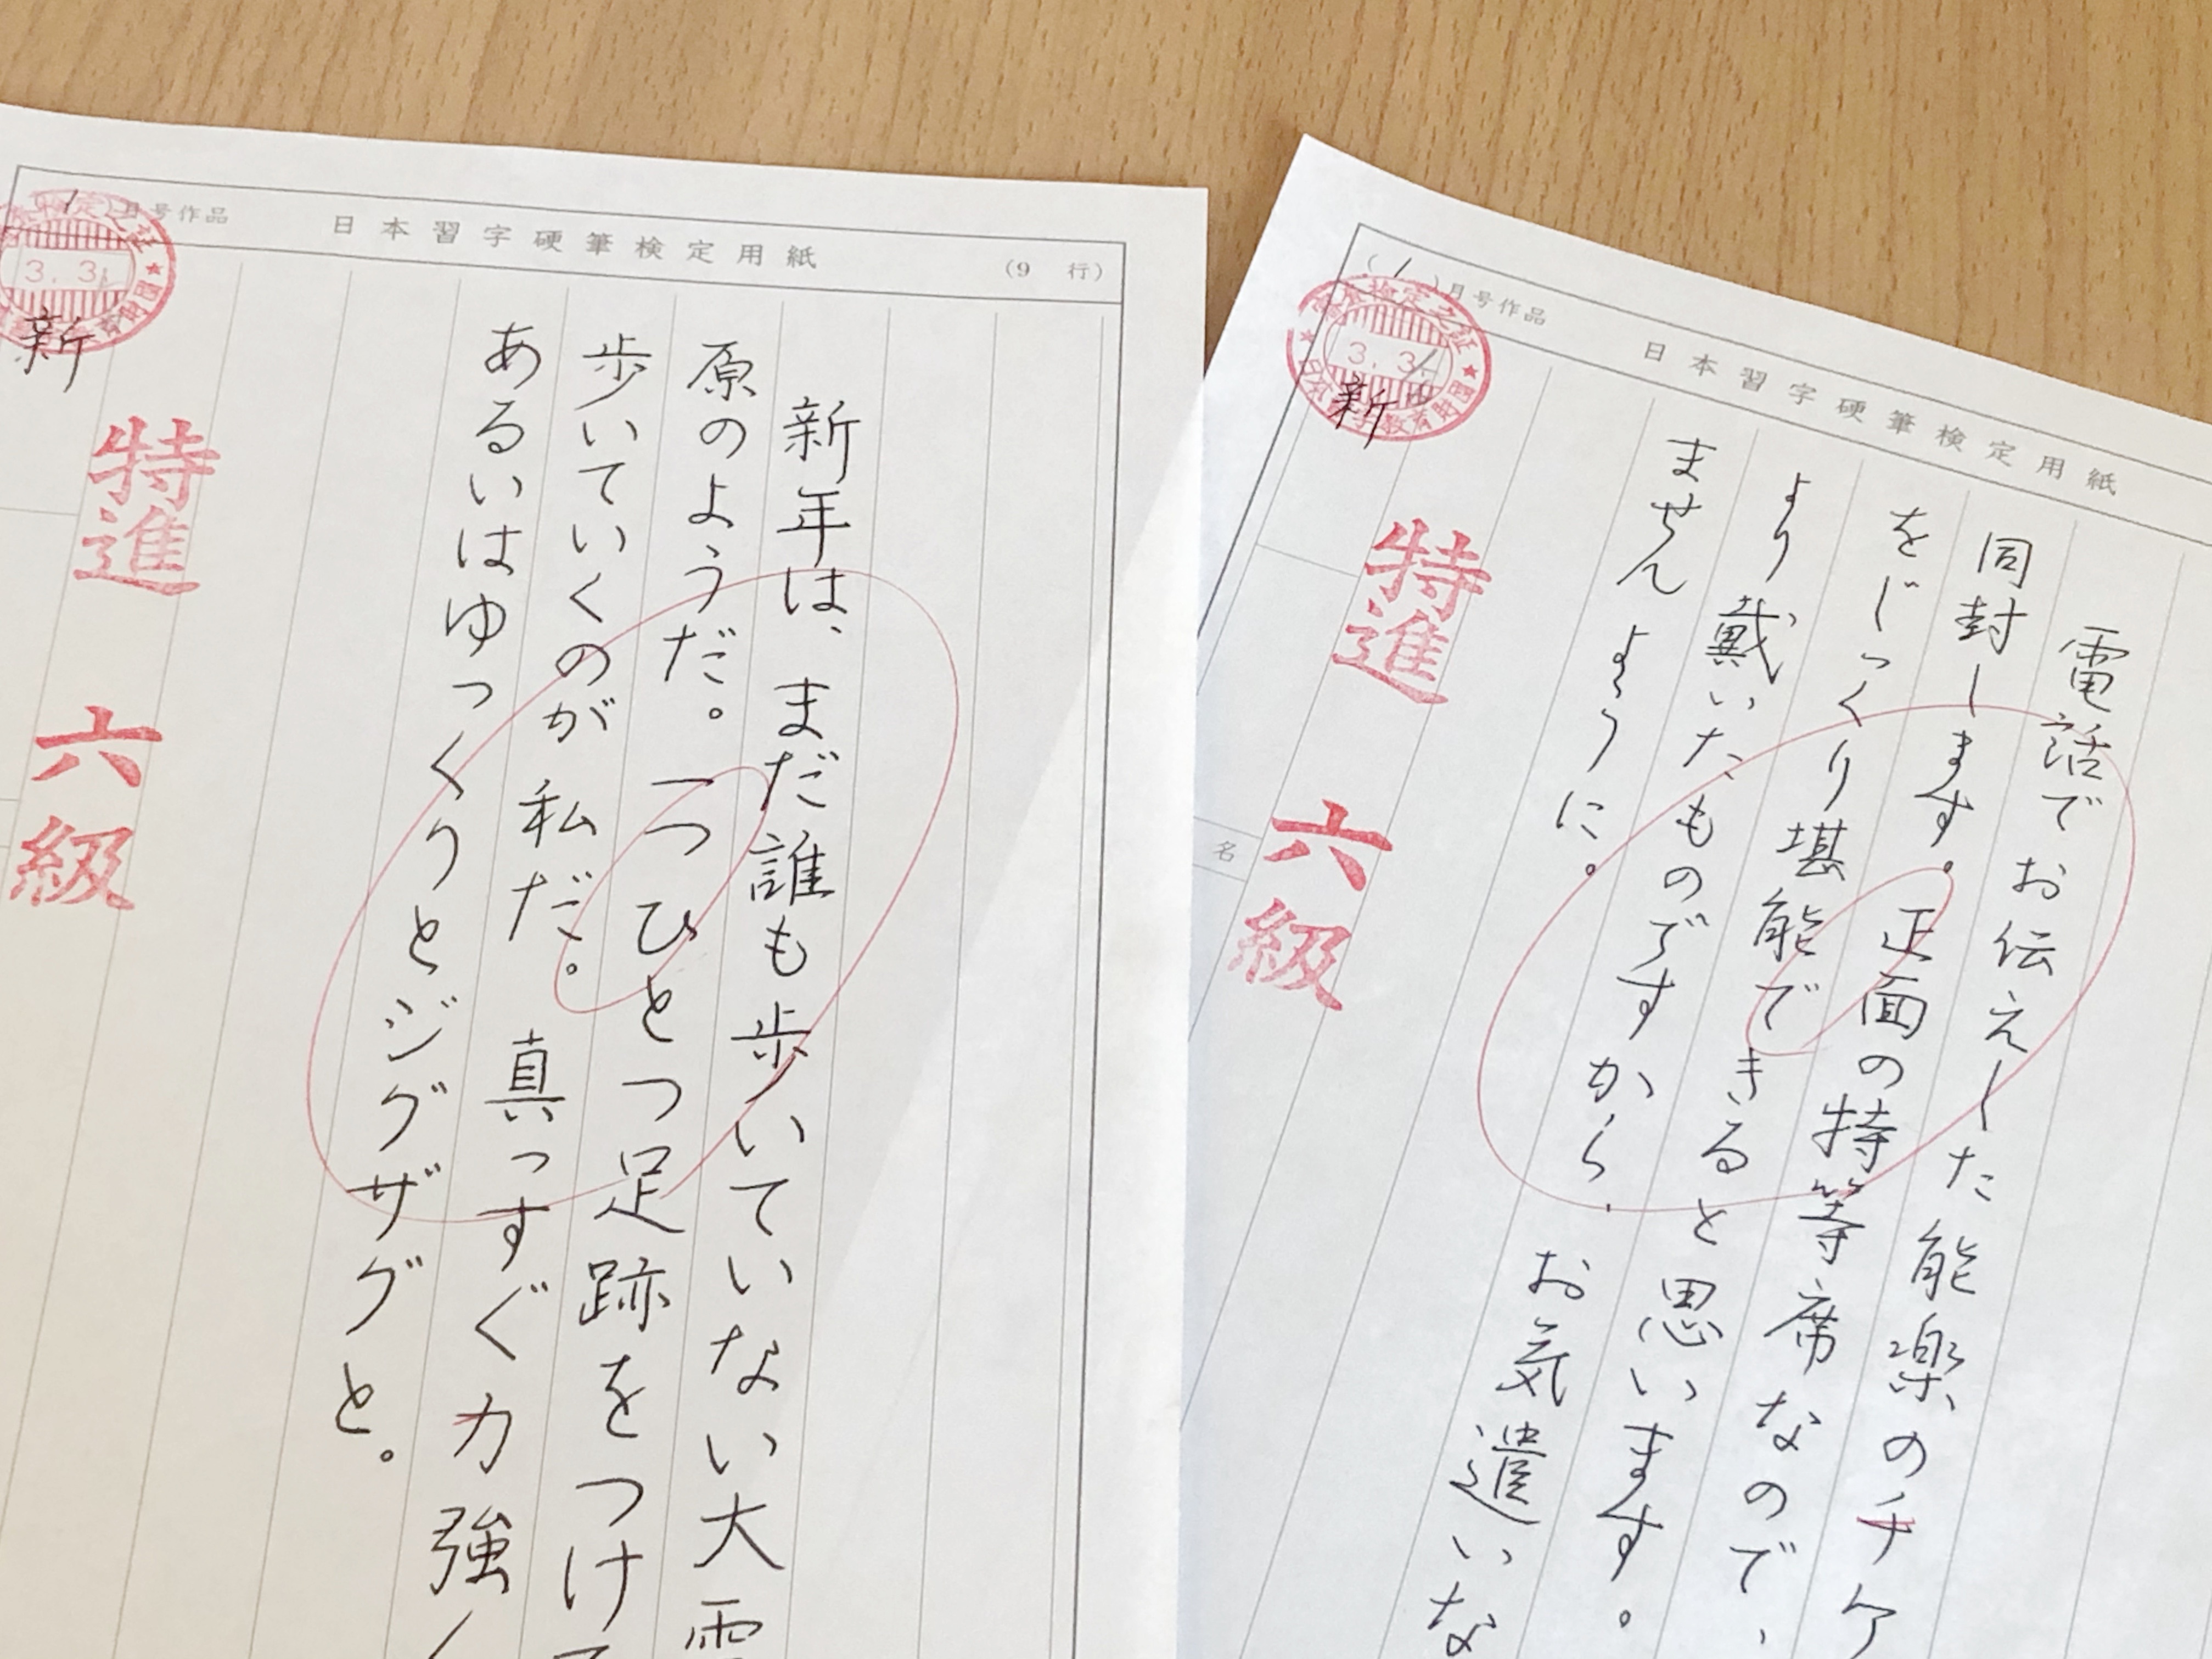 月号作品
日本習字硬筆検定用紙
(9 行)
新年は、まだ誰も歩いていない大雪
原のようだ。一つひとつ足跡をつけて
歩いていくのが私だ。真っすぐ力強く
あるいはゆっくりとジグザグと。
3.3.
新
特進 六級
(1)月号作品
日本習字硬筆検定用紙
電話でお伝えした能楽のチケ
同封します。正面の特等席なので、
をじっくり堪能できると思います。
より戴いたものですから、お気遣いな
ませんように。
3.3.
新
特進 六級
名